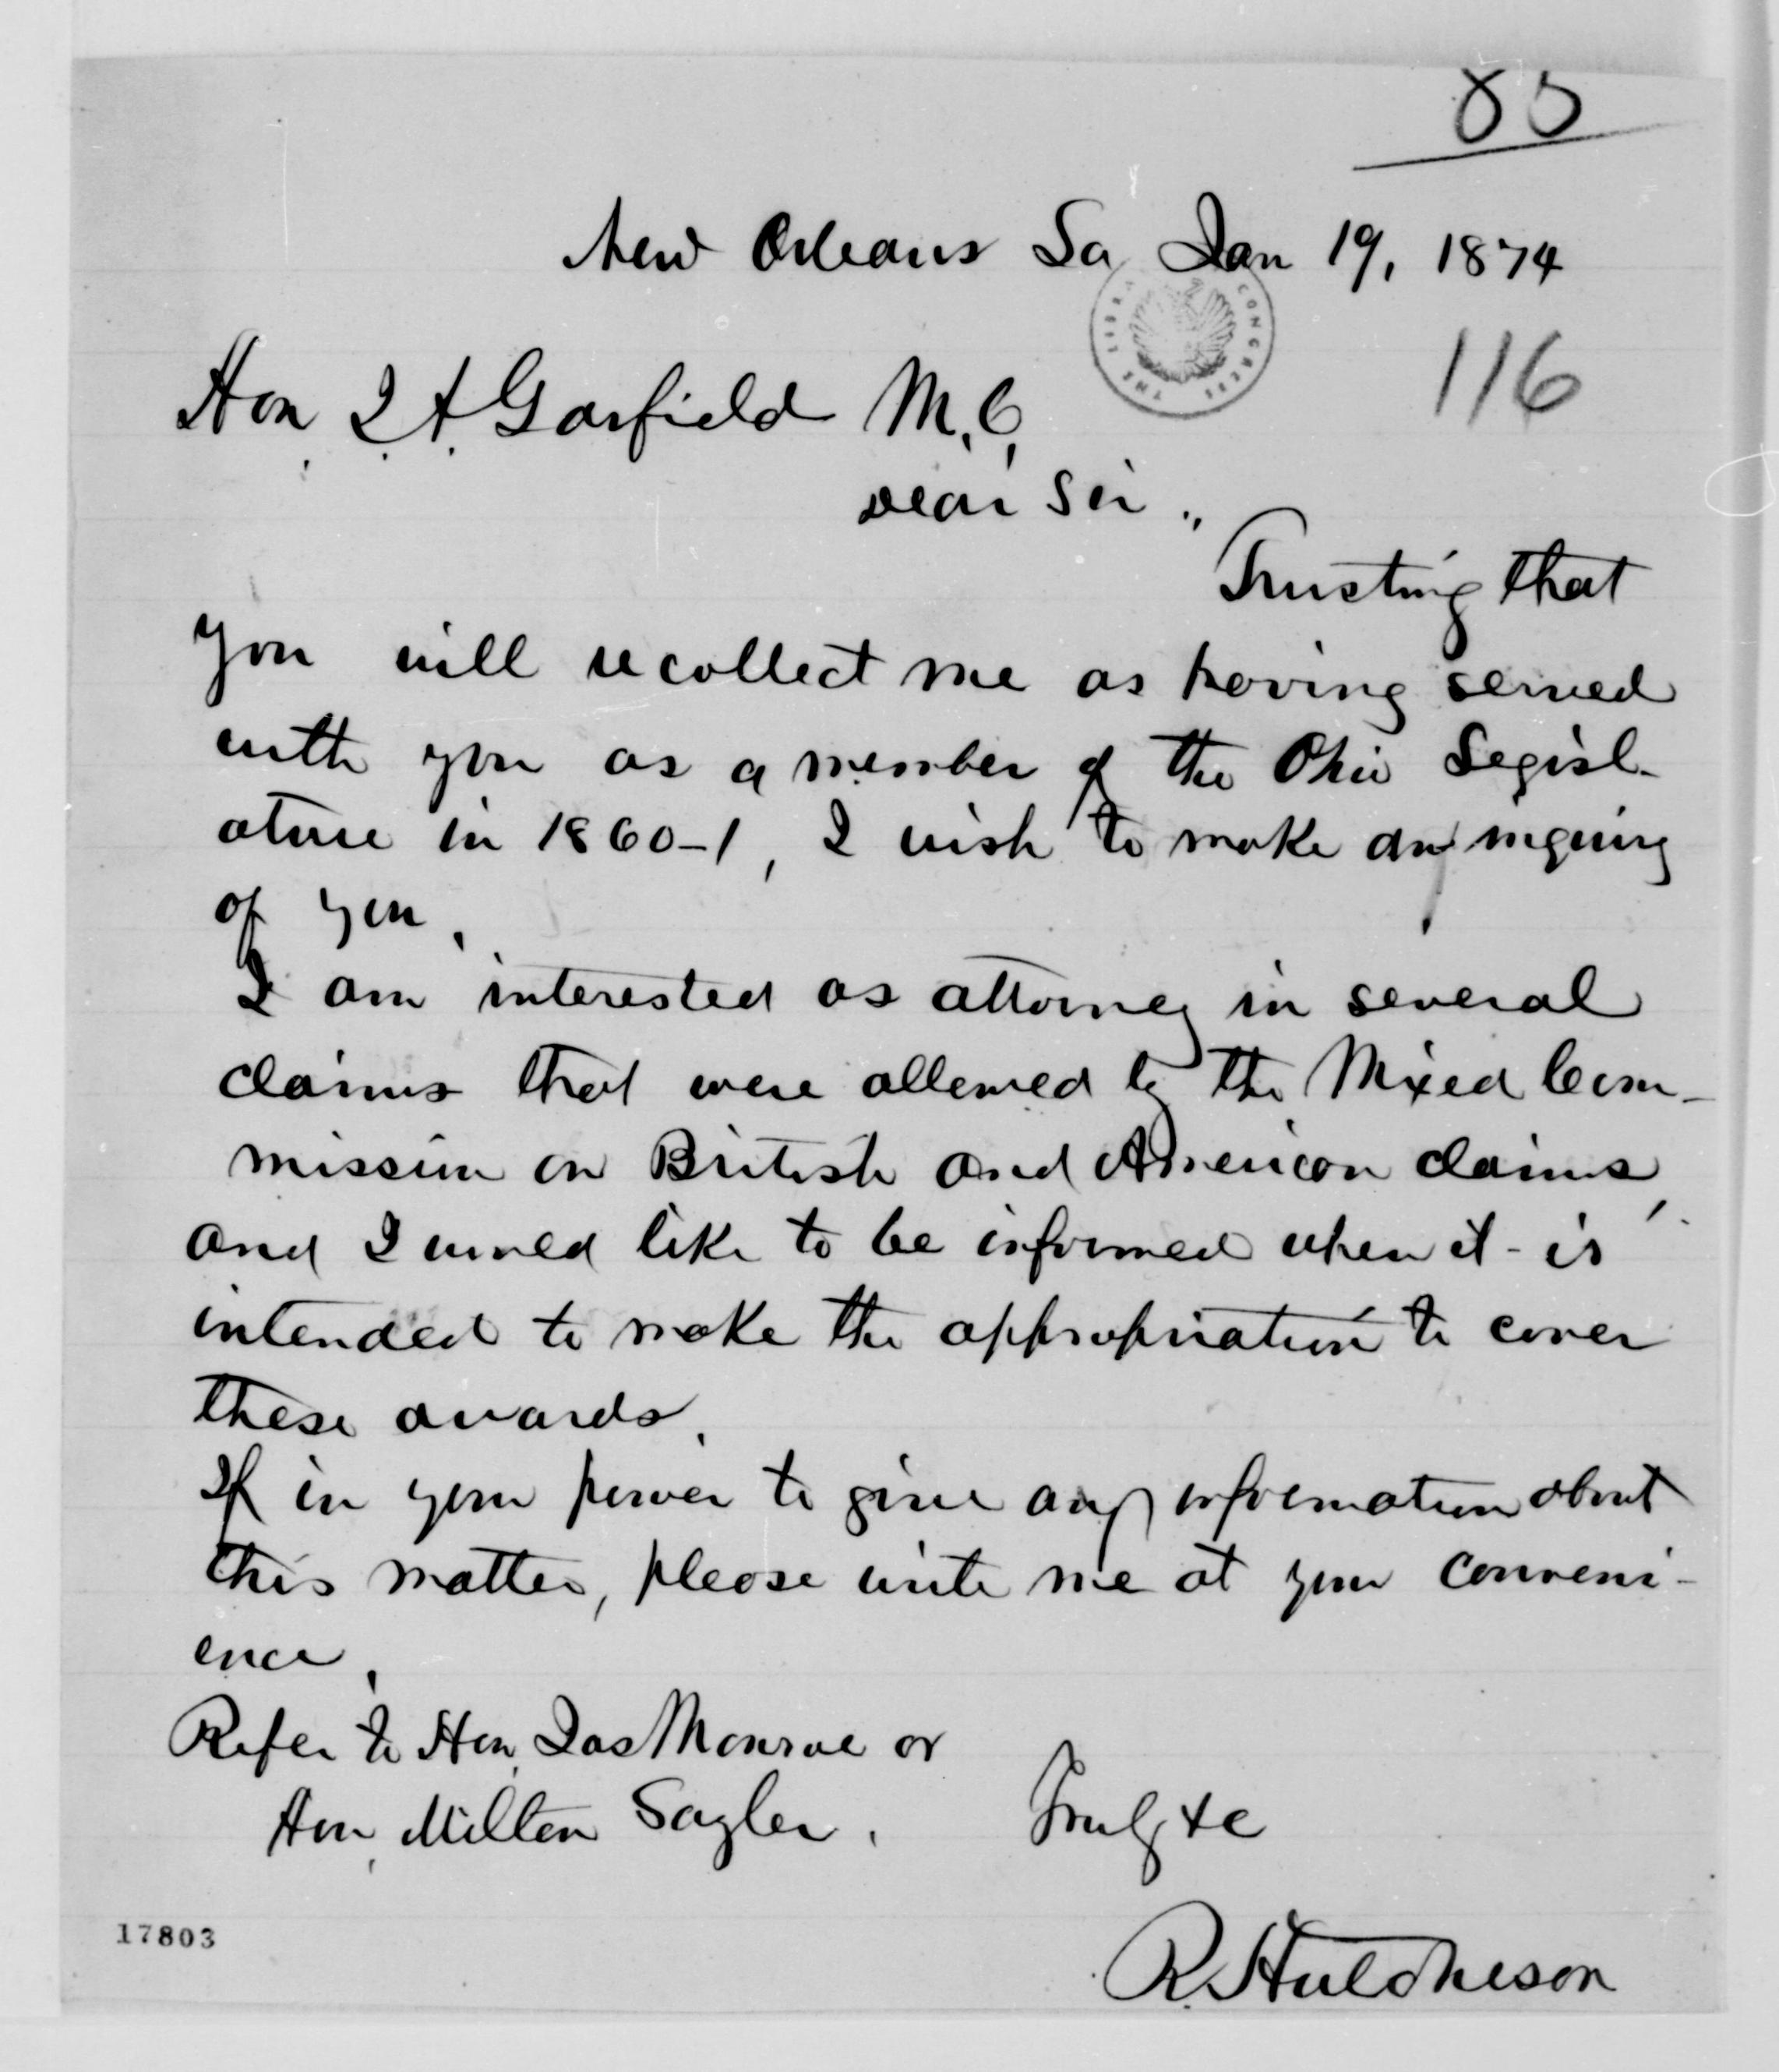 85
New Orleans La Jan 19, 1874
THE LIBRARY CONGRESS
116
Hon. J. A. Garfield M.C.
Dear Sir.,
Trusting that
you will recollect me as having served
with you as a member of the Ohio Legisl-
ature in 1860-1, I wish to make an inquiry
of you.
I am interested as attorney in several
claims that were allowed by the Mixed Com-
mission on British and American claims,
and I would like to be informed when it is
intended to make the appropriation to cover
these awards.
If in your power to give any information about
this matter, please write me at your conveni-
ence.
Refer to Hon. Jas Monroe or
Hon. Milton Sayler.
Truly &c
R. Hutcheson
17803